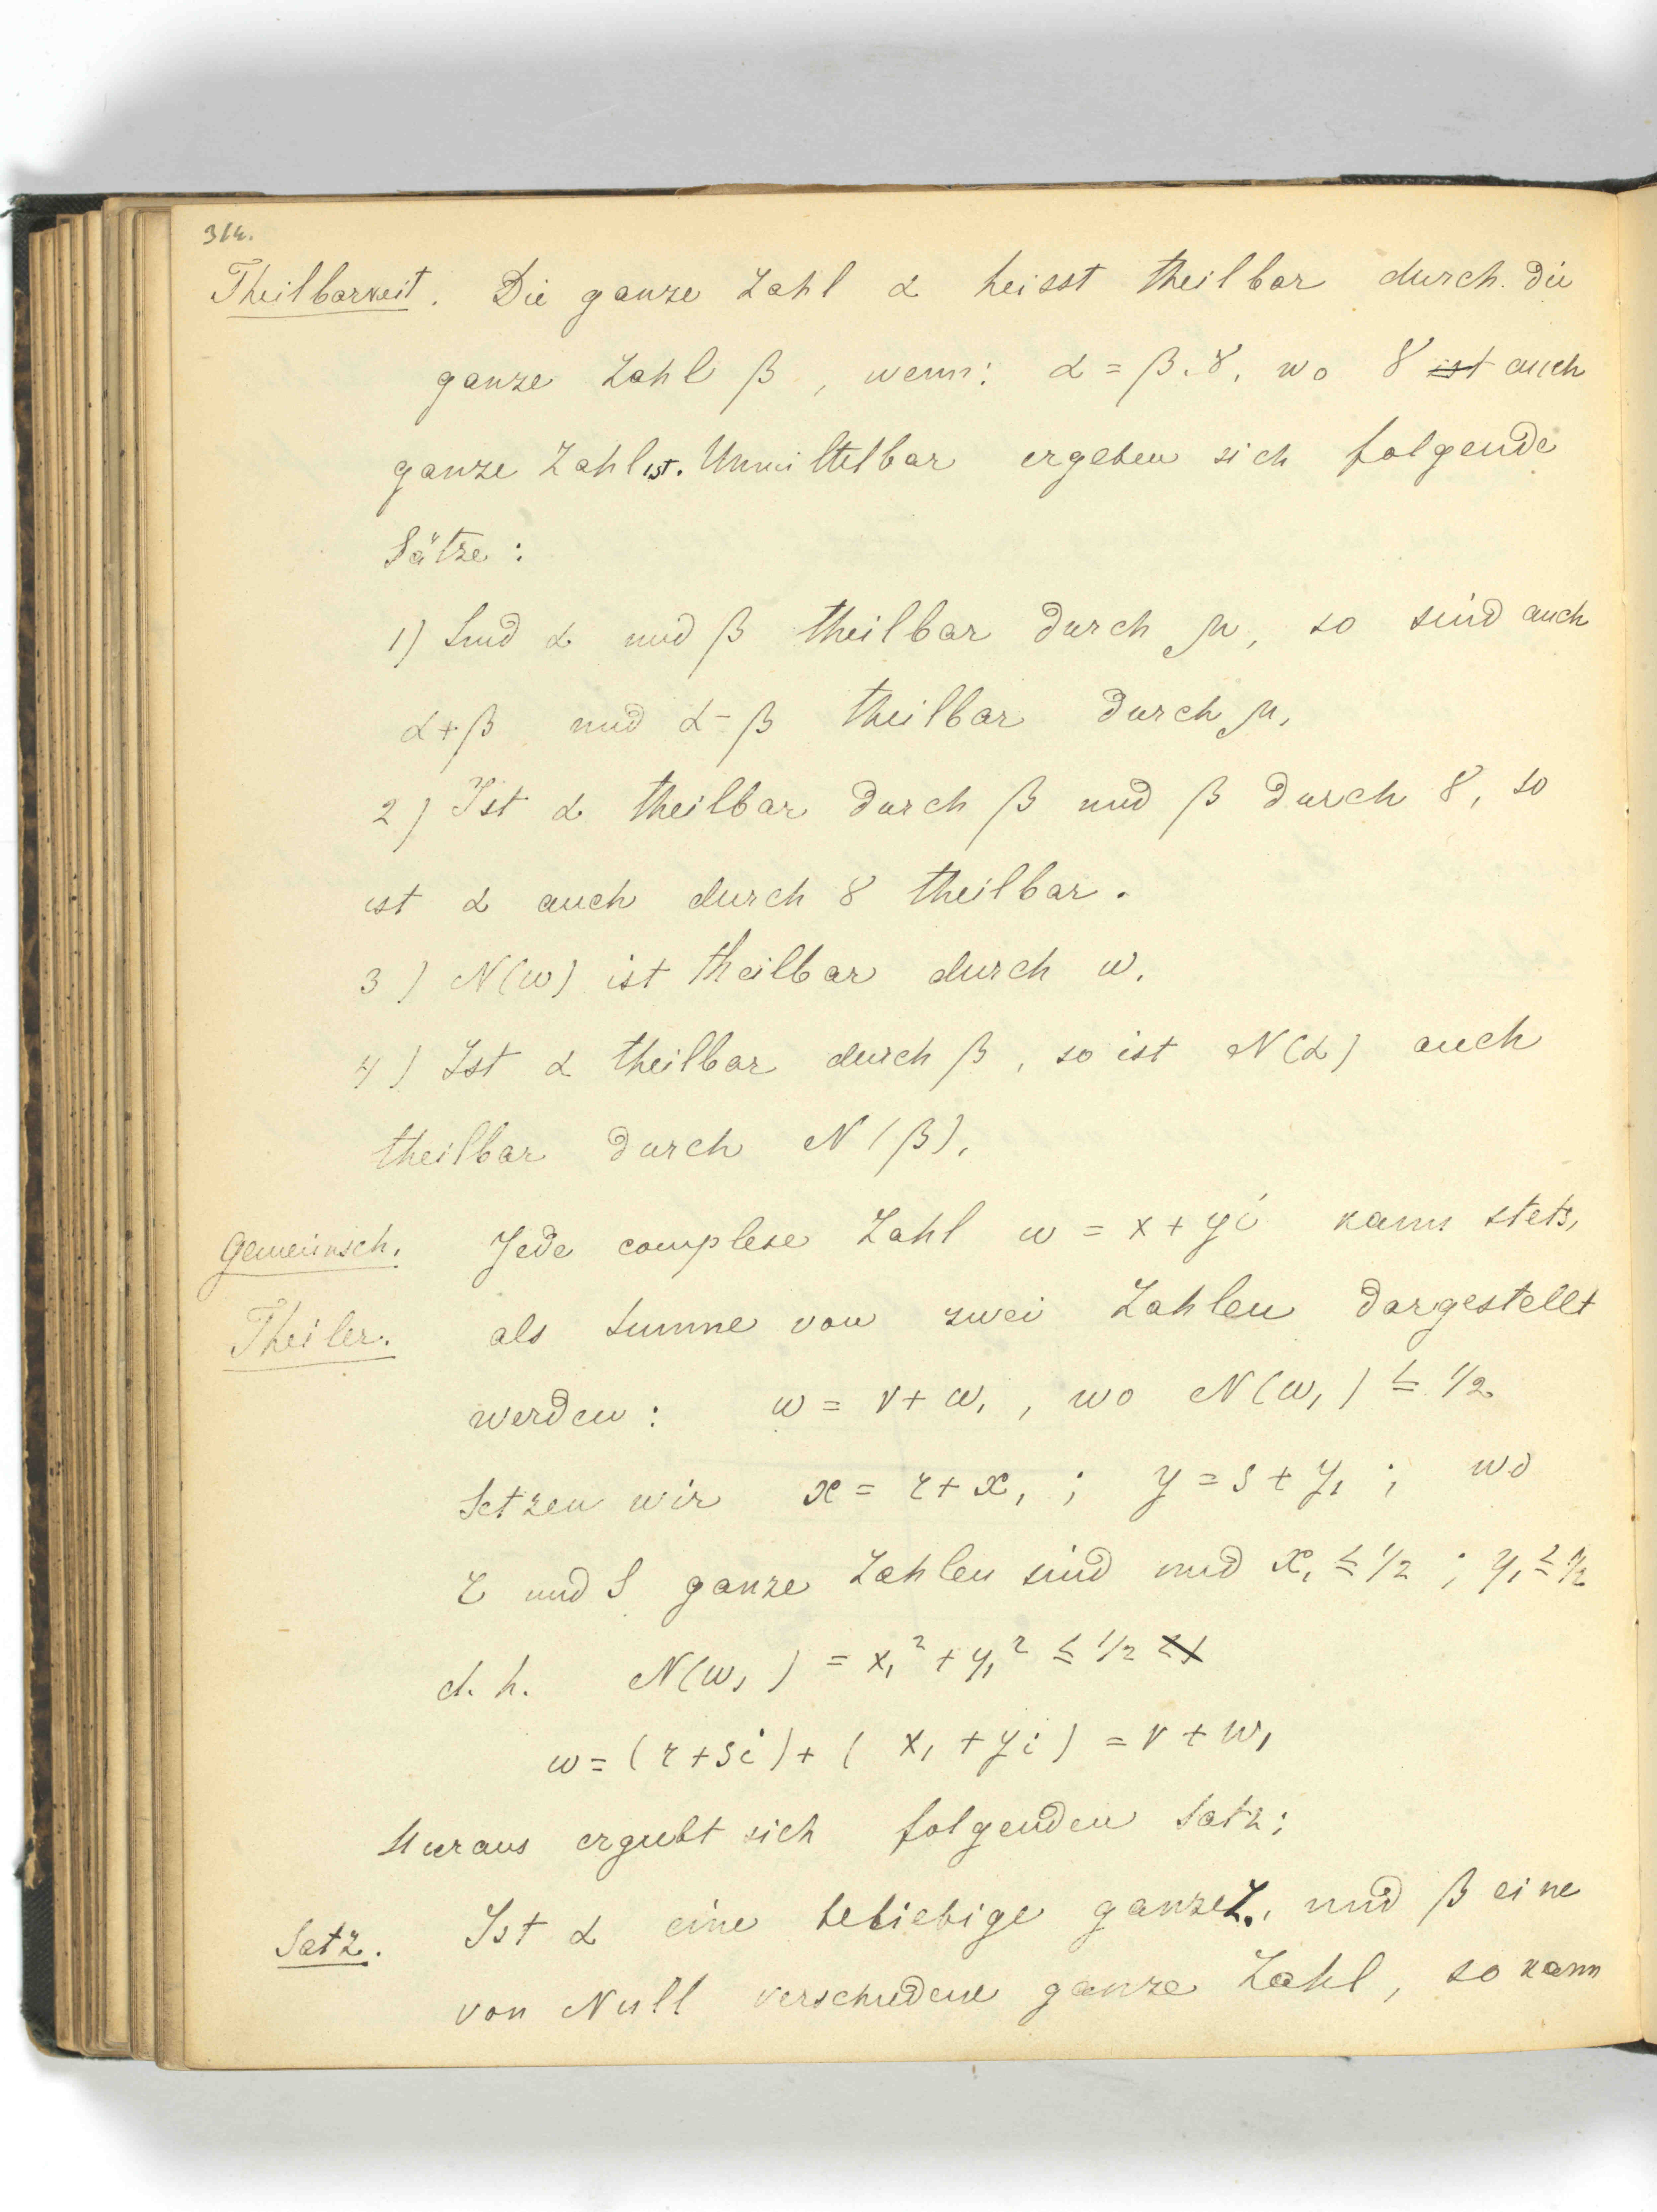 314.
Theilbarkeit. Die ganze Zahl α heisst theilbar durch die
ganze Zahl β, wenn: α = β.γ, wo γ ~~ist~~ auch
ganze Zahl ist. Unmittelbar ergeben sich folgende
Sätze:
1) Sind α und β theilbar durch μ, so sind auch
α+β und α-β theilbar durch μ.
2) Ist α theilbar durch β und β durch γ, so
ist α auch durch γ theilbar.
3) N(ω) ist theilbar durch ω.
4) Ist α theilbar durch β, so ist N(α) auch
theilbar durch N(β).
Gemeinsch. Jede complexe Zahl ω = x + yi kann stets
Theiler. als Summe von zwei Zahlen dargestellt
werden: ω = ν + ω₁, wo N(ω₁) ≤ 1/2
Setzen wir x = r + x₁ ; y = s + y₁ ; wo
r und s ganze Zahlen sind und x₁ ≤ 1/2 ; y₁ ≤ 1/2
d. h. N(ω₁) = x₁² + y₁² ≤ 1/2 ~~<1~~
ω = (r + si) + ( x₁ + yi) = ν + ω₁
Hieraus ergiebt sich folgenden Satz:
Satz. Ist α eine beliebige ganze Z., und β eine
von Null verschiedene ganze Zahl, so kann